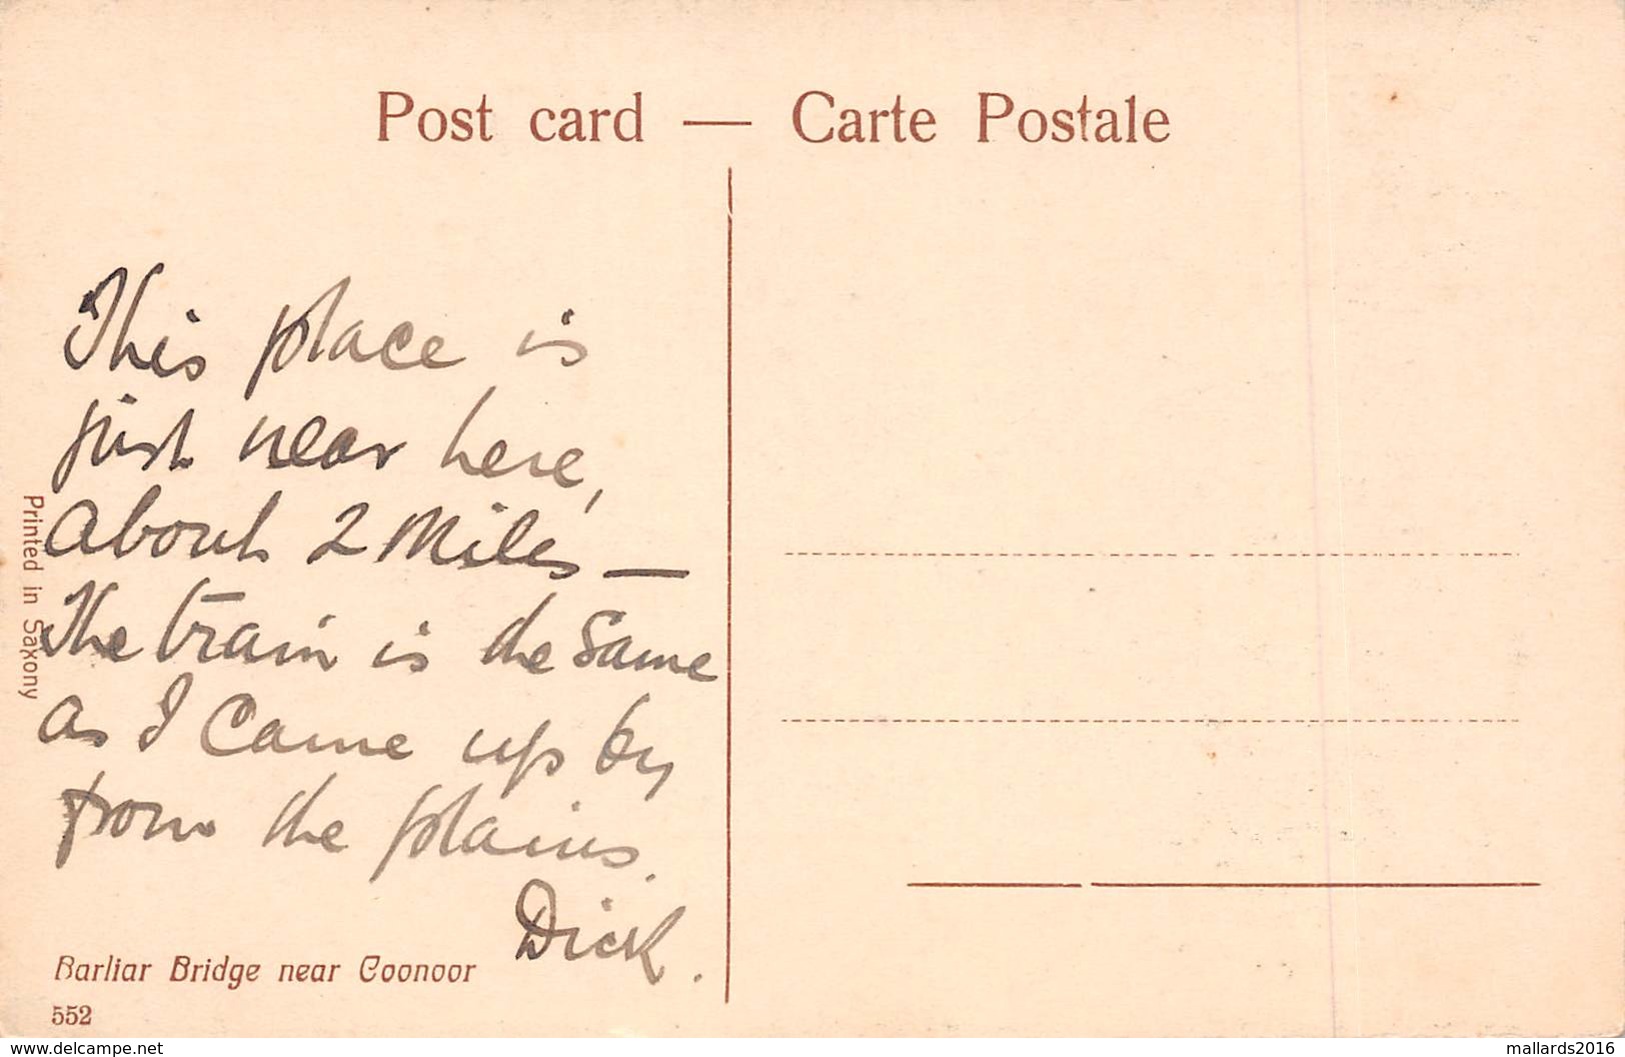 Post card — Carte Postale
This place is
just near here,
About 2 Miles —
The train is the same
as I Came up by
from the plains.
Dick.
Printed in Saxony
Barliar Bridge near Coonoor
552
www.delcampe.net
mallards2016